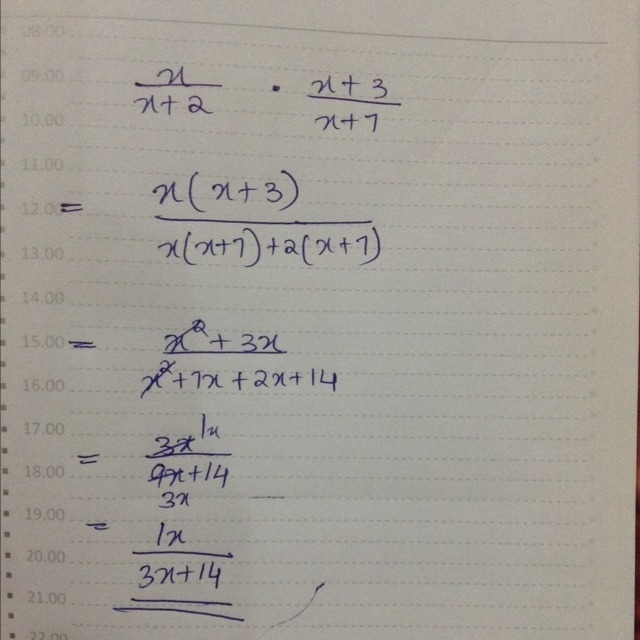 08.00
09.00
x/x+2 · x+3/x+7
10.00
11.00
12.00 = x(x+3)/x(x+7)+2(x+7)
13.00
14.00
15.00 = x²+3x/x²+7x+2x+14
16.00
17.00
= 3x 1x/9x+14
18.00
3x
19.00
= 1x/3x+14
20.00
21.00
22.00